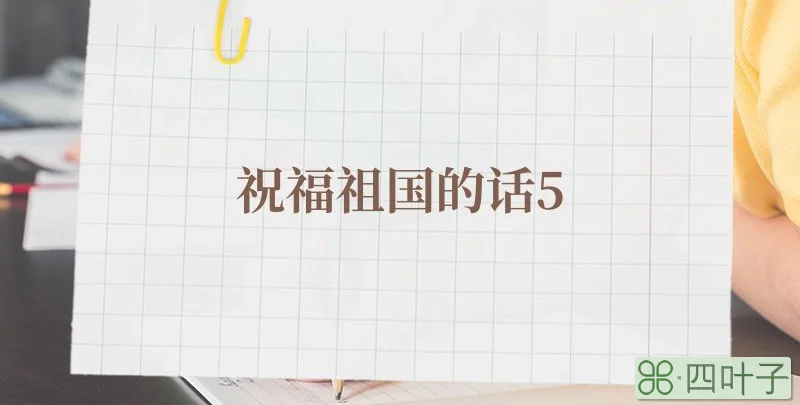 祝福祖国的话5
四叶子